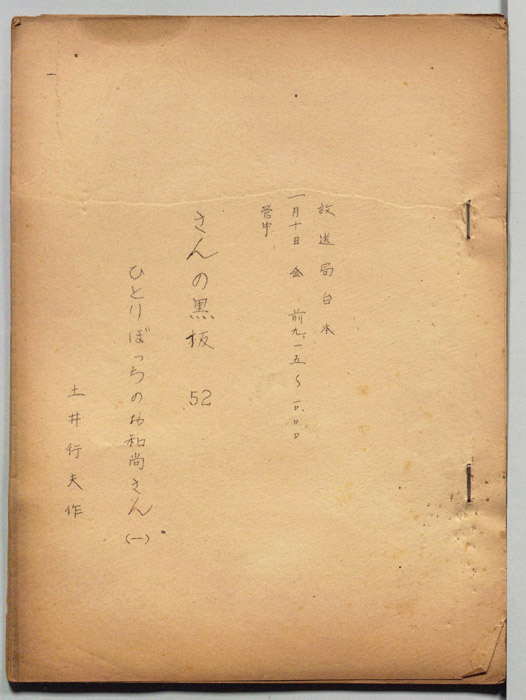 放送局台本
一月十日 金 前九、一五〜一〇、〇〇
管中
さんの黒板 52
ひとりぼっちのお和尚さん (一)
土井行夫作